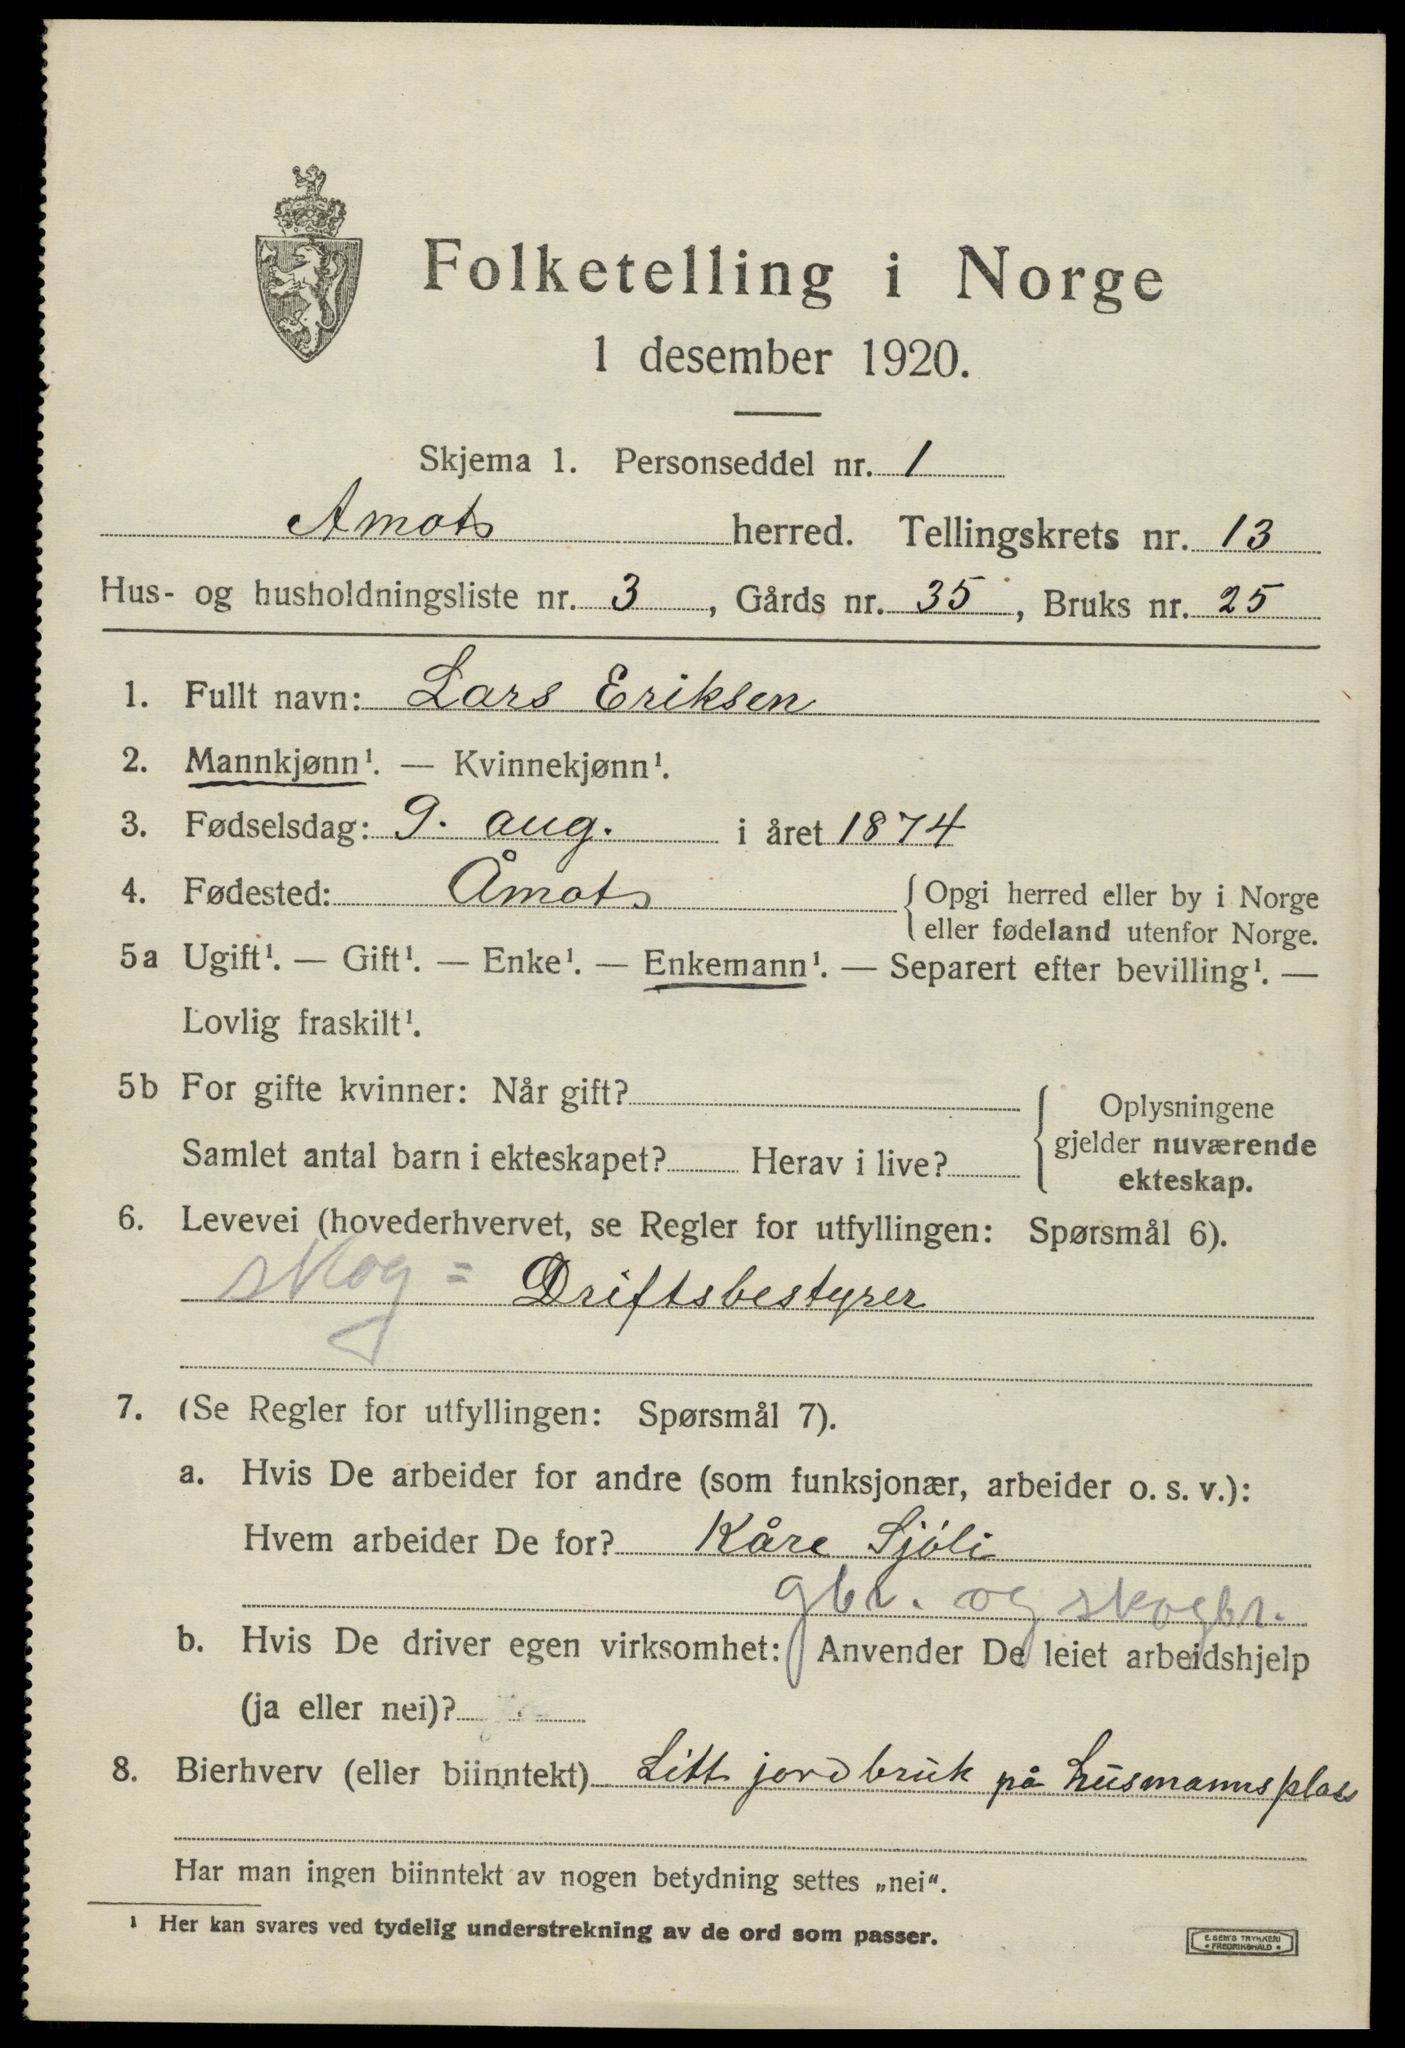 Folketelling i Norge
1 desember 1920.
Skjema 1. Personseddel nr. 1
Amots herred. Tellingskrets nr. 13
Hus- og husholdningsliste nr. 3, Gårds nr. 35, Bruks nr. 25
1. Fullt navn: Lars Eriksen
2. Mannkjønn¹. — Kvinnekjønn¹.
3. Fødselsdag: 9. aug. i året 1874
4. Fødested: Åmots { Opgi herred eller by i Norge
eller fødeland utenfor Norge.
5a Ugift¹. — Gift¹. — Enke¹. — Enkemann¹. — Separert efter bevilling¹. —
Lovlig fraskilt¹.
5b For gifte kvinner: Når gift?
Samlet antal barn i ekteskapet? Herav i live?
{ Oplysningene
gjelder nuværende
ekteskap.
6. Levevei (hovederhvervet, se Regler for utfyllingen: Spørsmål 6).
skog = Driftsbestyrer
7. (Se Regler for utfyllingen: Spørsmål 7).
a. Hvis De arbeider for andre (som funksjonær, arbeider o. s. v.):
Hvem arbeider De for? Kåre Sjöli
gbr. og skogbr.
b. Hvis De driver egen virksomhet: Anvender De leiet arbeidshjelp
(ja eller nei)?
8. Bierhverv (eller biinntekt) Litt jordbruk på husmannsplass
Har man ingen biinntekt av nogen betydning settes „nei“.
¹ Her kan svares ved tydelig understrekning av de ord som passer.
E. SEM'S TRYKKERI
• FREDRIKSHALD •